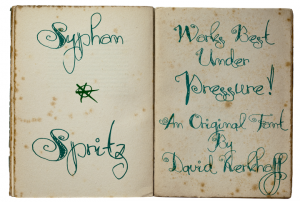 Syphon
Spritz
Works Best
Under
Pressure!
An Original Font
By
David Kerkhoff